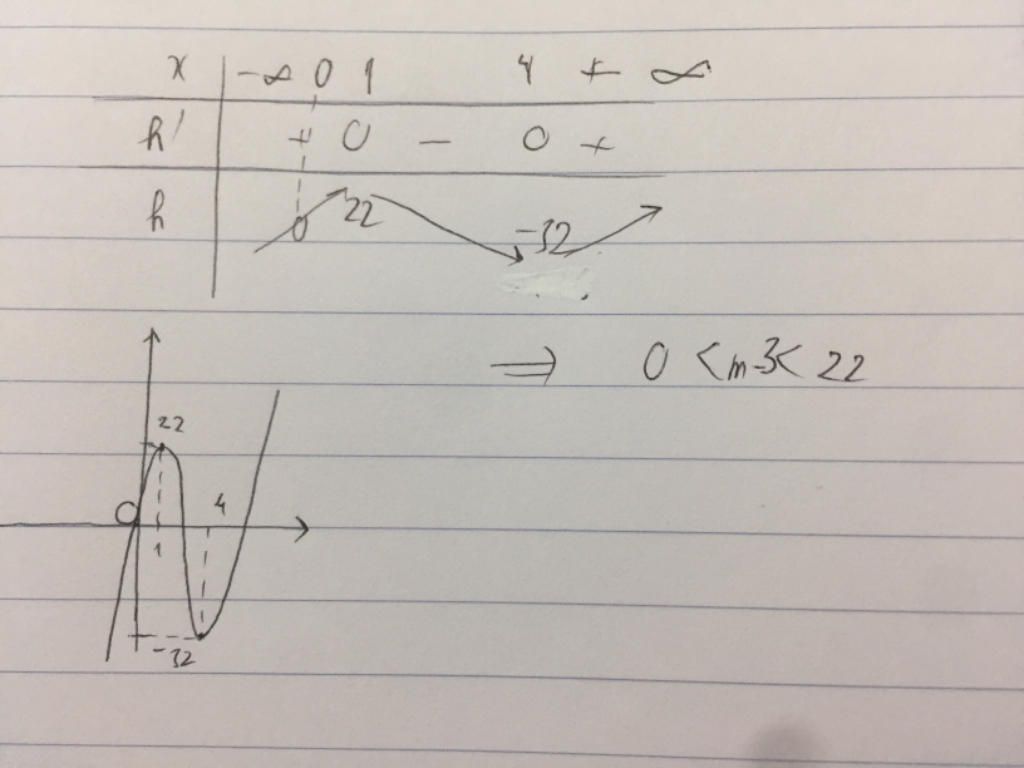 x -∞ 0 1 4 + ∞
h' + 0 - 0 +
h 0 22 -32
⇒ 0 < m-3 < 22
22
O 4
1
-32